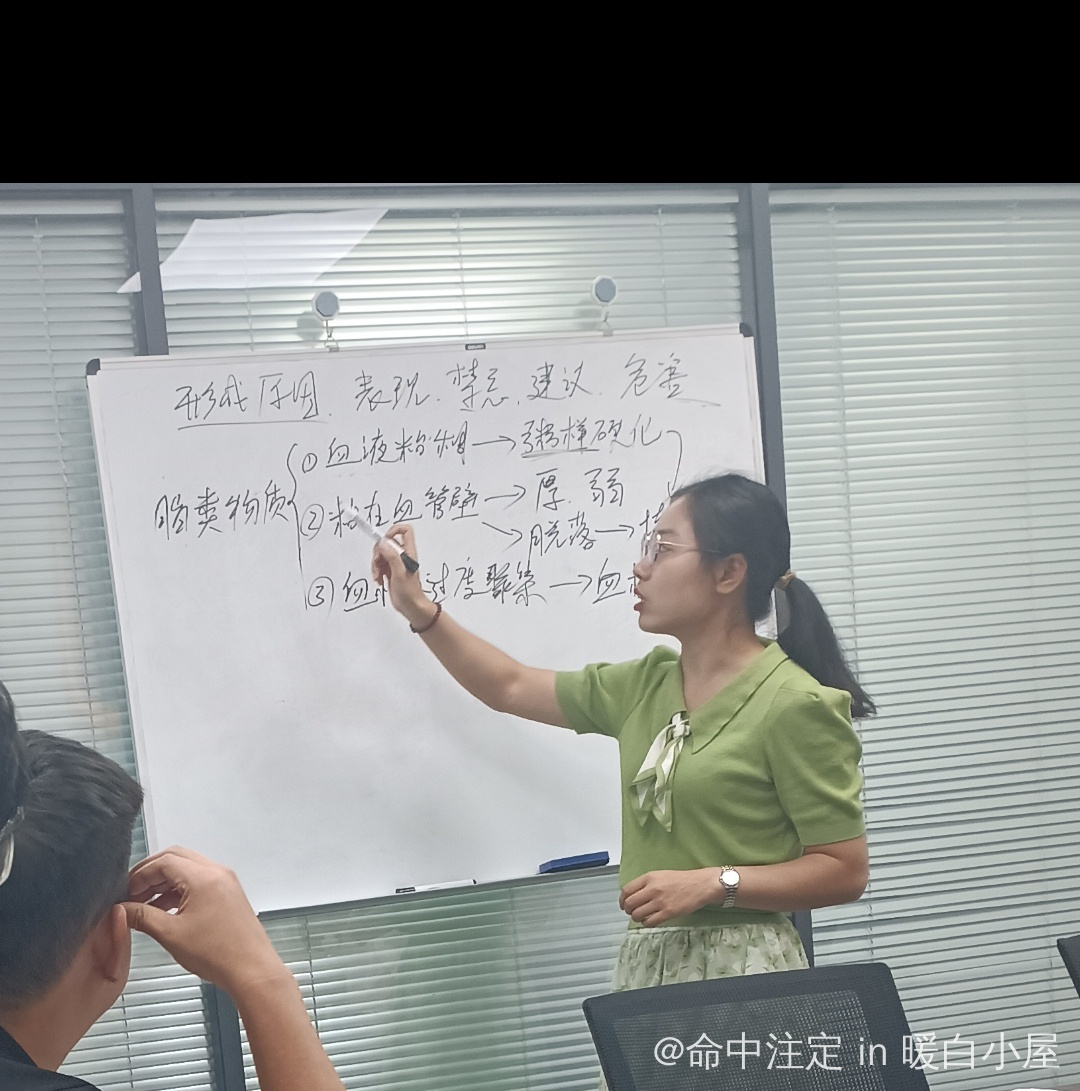 形成原因. 表现. 禁忌. 建议. 危害
脂类物质
①血液粉糊→粥样硬化
②粘在血管壁→厚. 弱
→脱落→
③血 过度聚集→血
@命中注定 in 暖白小屋